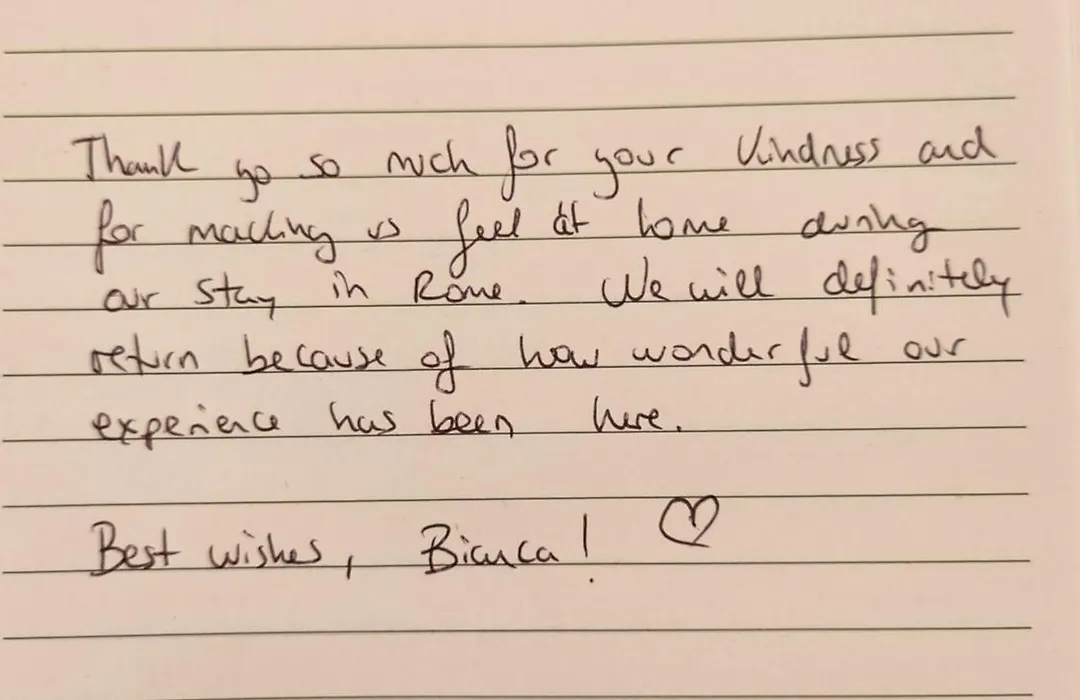 Thank yo so much for your kindness and
for making us feel at home during
our stay in Rome. We will definitely
return because of how wonderful our
experience has been here.
Best wishes, Bianca! ♡